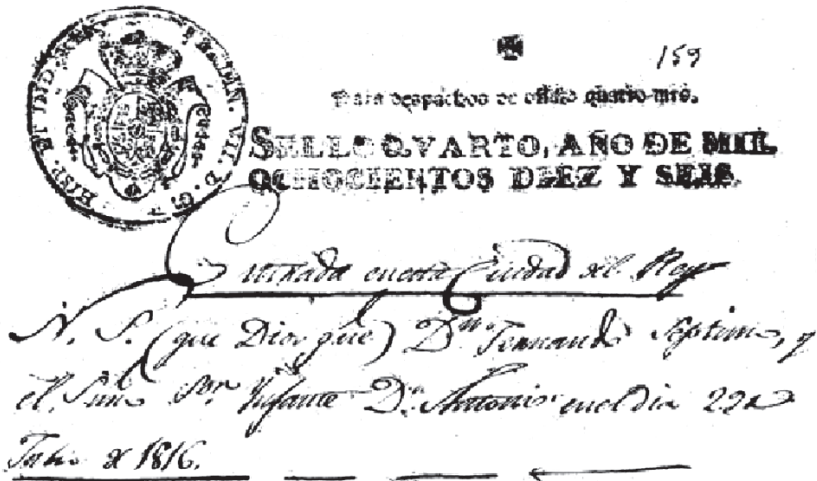 HISP. ET IND. REX. FERDIN. VII. D. G.
159
Para despachos de oficio quatro mrs.
SELLO QVARTO, AÑO DE MIL
OCHOCIENTOS DIEZ Y SEIS.
Entrada en esta Ciudad del Rey
N. S. (que Dios gũe) Dn. Fernando Septimo, y
el Sr. Infante Dn. Antonio en el dia 22 de
Julio de 1816.